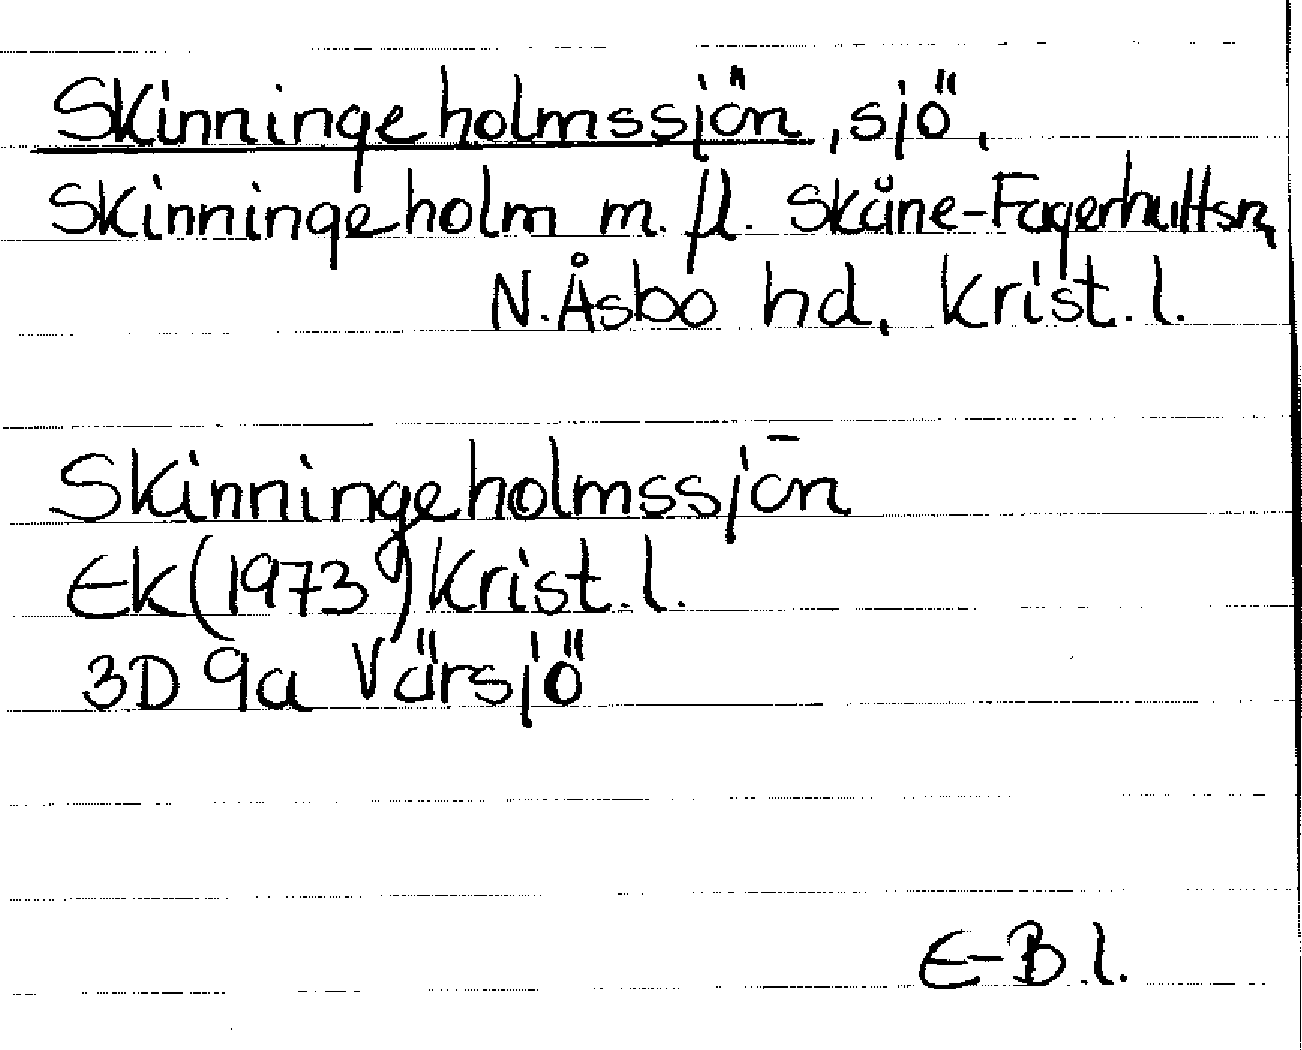 Skinningeholmssjön, sjö,
Skinningeholm m. fl. Skåne-Fagerhultsn,
N. Åsbo hd, Krist. l.
Skinningeholmssjön
Ek (1973) Krist. l.
3D 9a Värsjö
E-B. l.